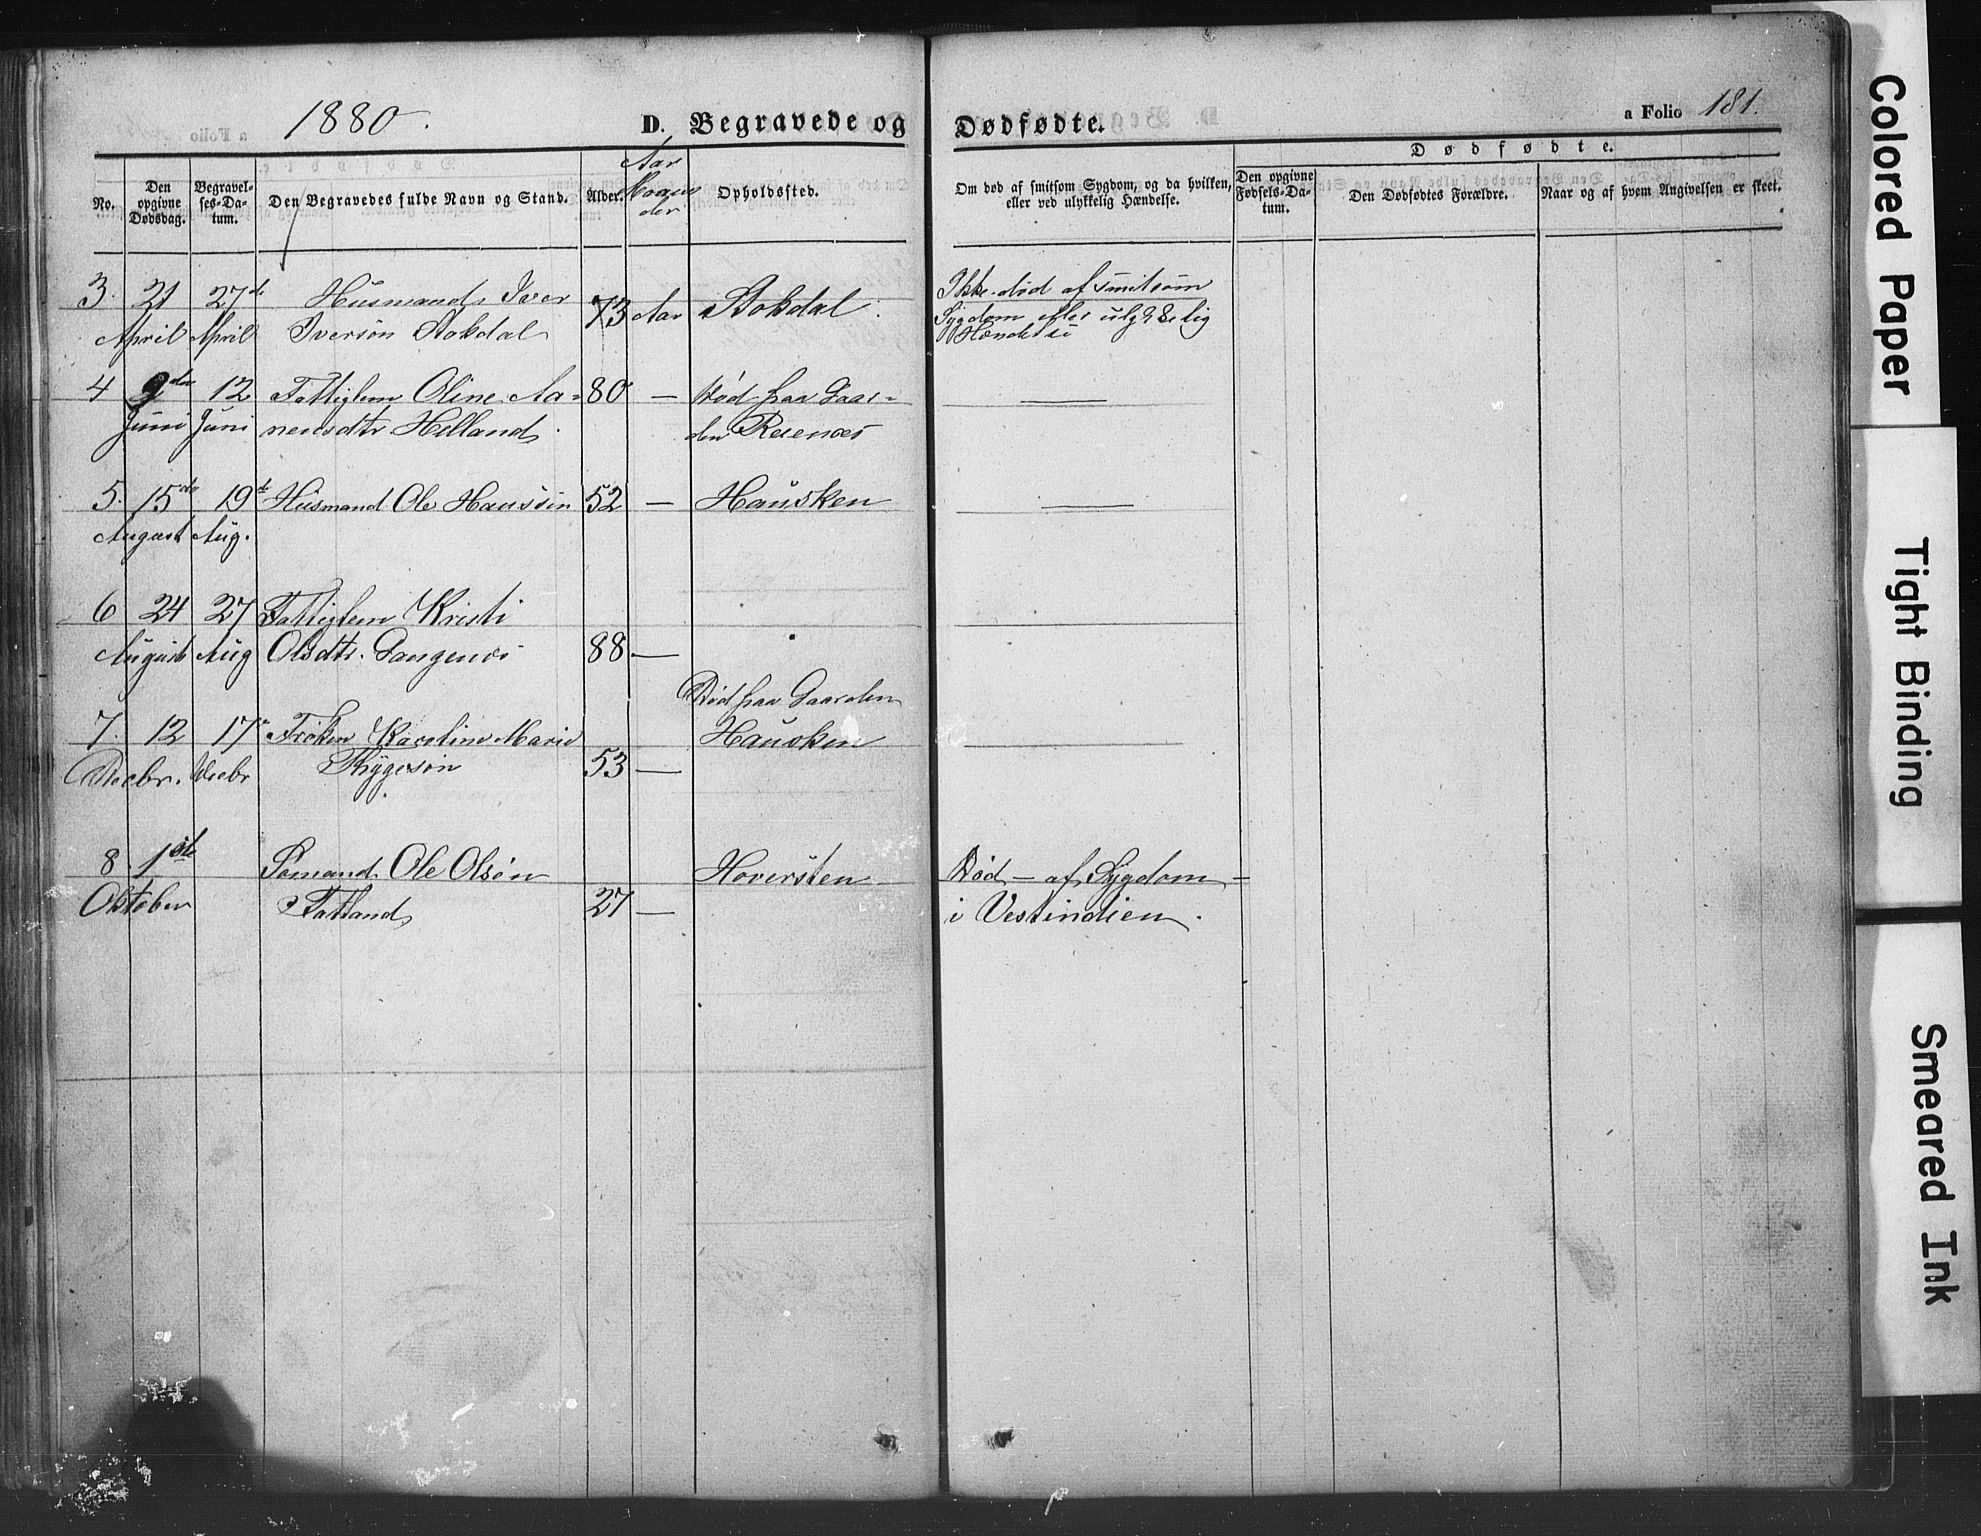 1880.
D. Begravede og Dødfødte.
a Folio 181.
No.
Den opgivne Dødsdag.
Begravelses-Datum.
Den Begravedes fulde Navn og Stand.
Alder.
Aar Maaneder
Opholdssted.
Om død af smitsom Sygdom, og da hvilken, eller ved ulykkelig Hændelse.
Dødfødte.
Den opgivne Fødsels-Datum.
Den Dødfødtes Forældre.
Naar og af hvem Angivelsen er skeet.
3. 21 27de Husmand Iver 73 Aar Stokdal. Ikke død af smitsom
April April Iversøn Stokdal Sygdom eller ulykkelig
Hændelse
4 9den 12 Fattiglem Oline Aa- 80 — død paa Gaar-
Juni Juni nensdtr Helland. den
5. 15de 19de Husmand Ole Hanssøn 52 — Hausken
August Aug.
6 24 27 Fattiglem Kristi
August Aug Olsdtr. Langenes 88 —
Død paa Gaarden
7. 12 17 Frøken Karoline Marie Hausken
Decbr. Decbr Thygesøn 53 —
8 1ste Sømand Ole Olsøn Hoversten Død — af Sygdom —
Oktober Tatland 27 — i Vestindien.
Colored Paper
Tight Binding
Smeared Ink